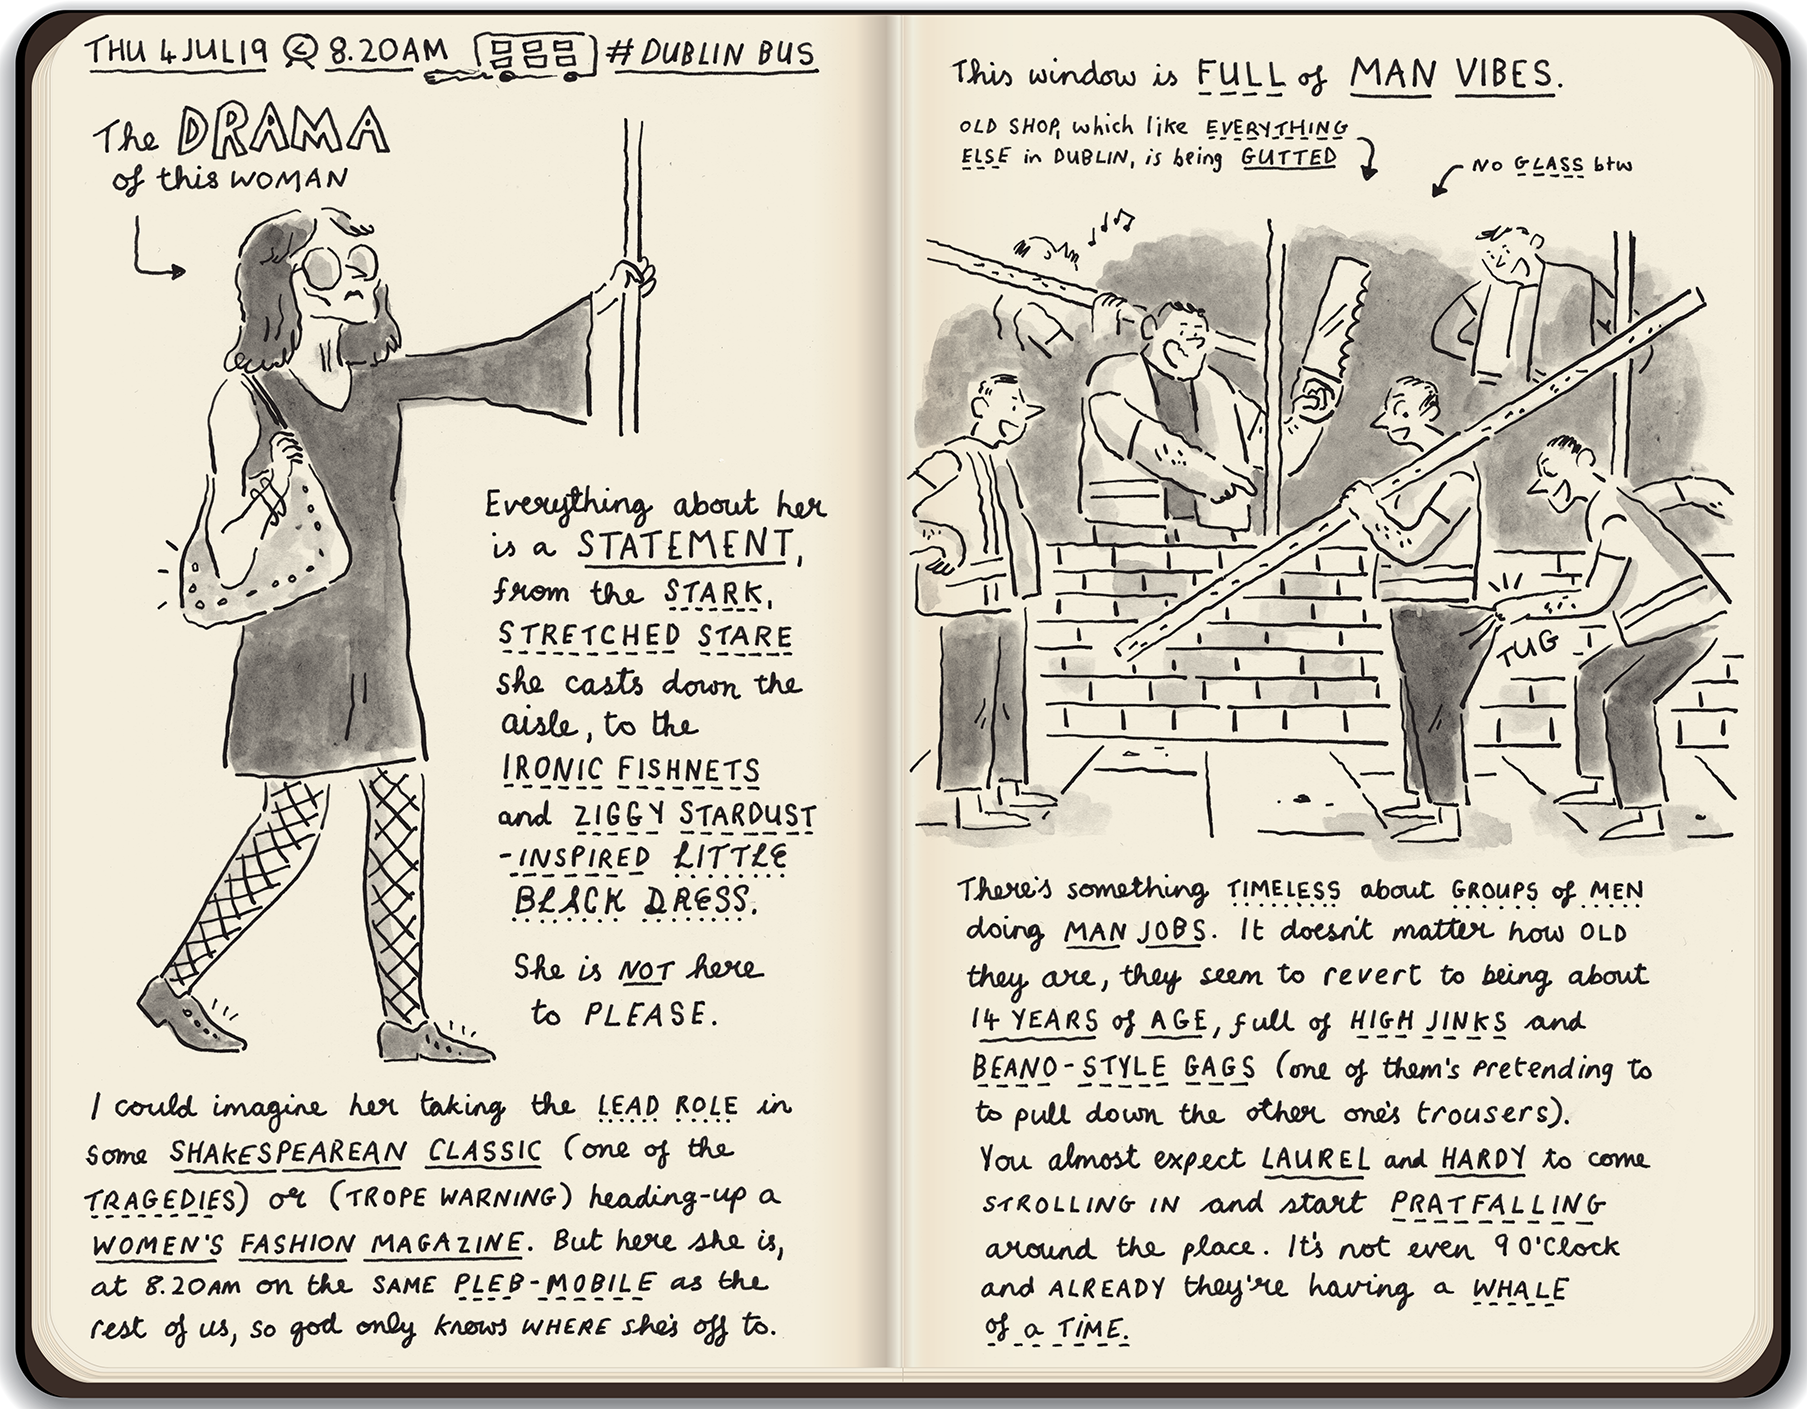 THU 4 JUL 19 8.20AM # DUBLIN BUS
The DRAMA
of this WOMAN
Everything about her
is a STATEMENT,
from the STARK,
STRETCHED STARE
she casts down the
aisle, to the
IRONIC FISHNETS
and ZIGGY STARDUST
-INSPIRED LITTLE
BLACK DRESS.
She is NOT here
to PLEASE.
I could imagine her taking the LEAD ROLE in
some SHAKESPEAREAN CLASSIC (one of the
TRAGEDIES) or (TROPE WARNING) heading-up a
WOMEN'S FASHION MAGAZINE. But here she is,
at 8.20AM on the SAME PLEB-MOBILE as the
rest of us, so god only knows WHERE she's off to.
This window is FULL of MAN VIBES.
OLD SHOP, which like EVERYTHING
ELSE in DUBLIN, is being GUTTED
NO GLASS btw
TUG
There's something TIMELESS about GROUPS of MEN
doing MAN JOBS. It doesn't matter how OLD
they are, they seem to revert to being about
14 YEARS of AGE, full of HIGH JINKS and
BEANO-STYLE GAGS (one of them's pretending to
to pull down the other one's trousers).
You almost expect LAUREL and HARDY to come
STROLLING IN and start PRATFALLING
around the place. It's not even 9 O'Clock
and ALREADY they're having a WHALE
of a TIME.